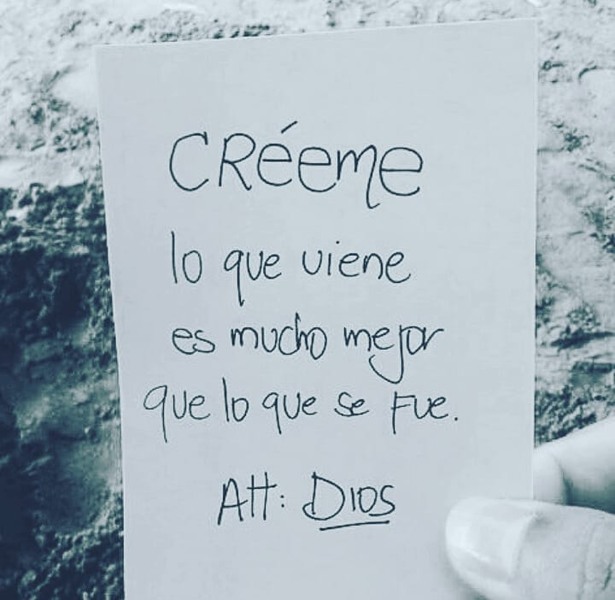 CRÉEME
lo que viene
es mucho mejor
que lo que se fue.
Att: Dios